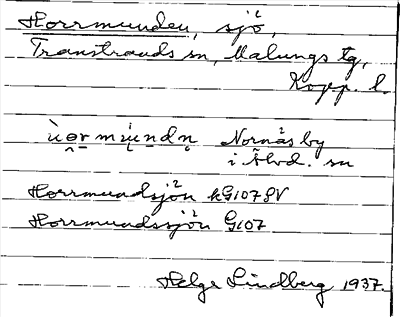 Horrmunden, sjö²,
Transtrands sn, Malungs tg,
Kopp. l.
Nornäs by
i Älvd. sn
Horrmundsjön² kG1078V
Horrmundssjön² G107
Helge Lindberg 1937.